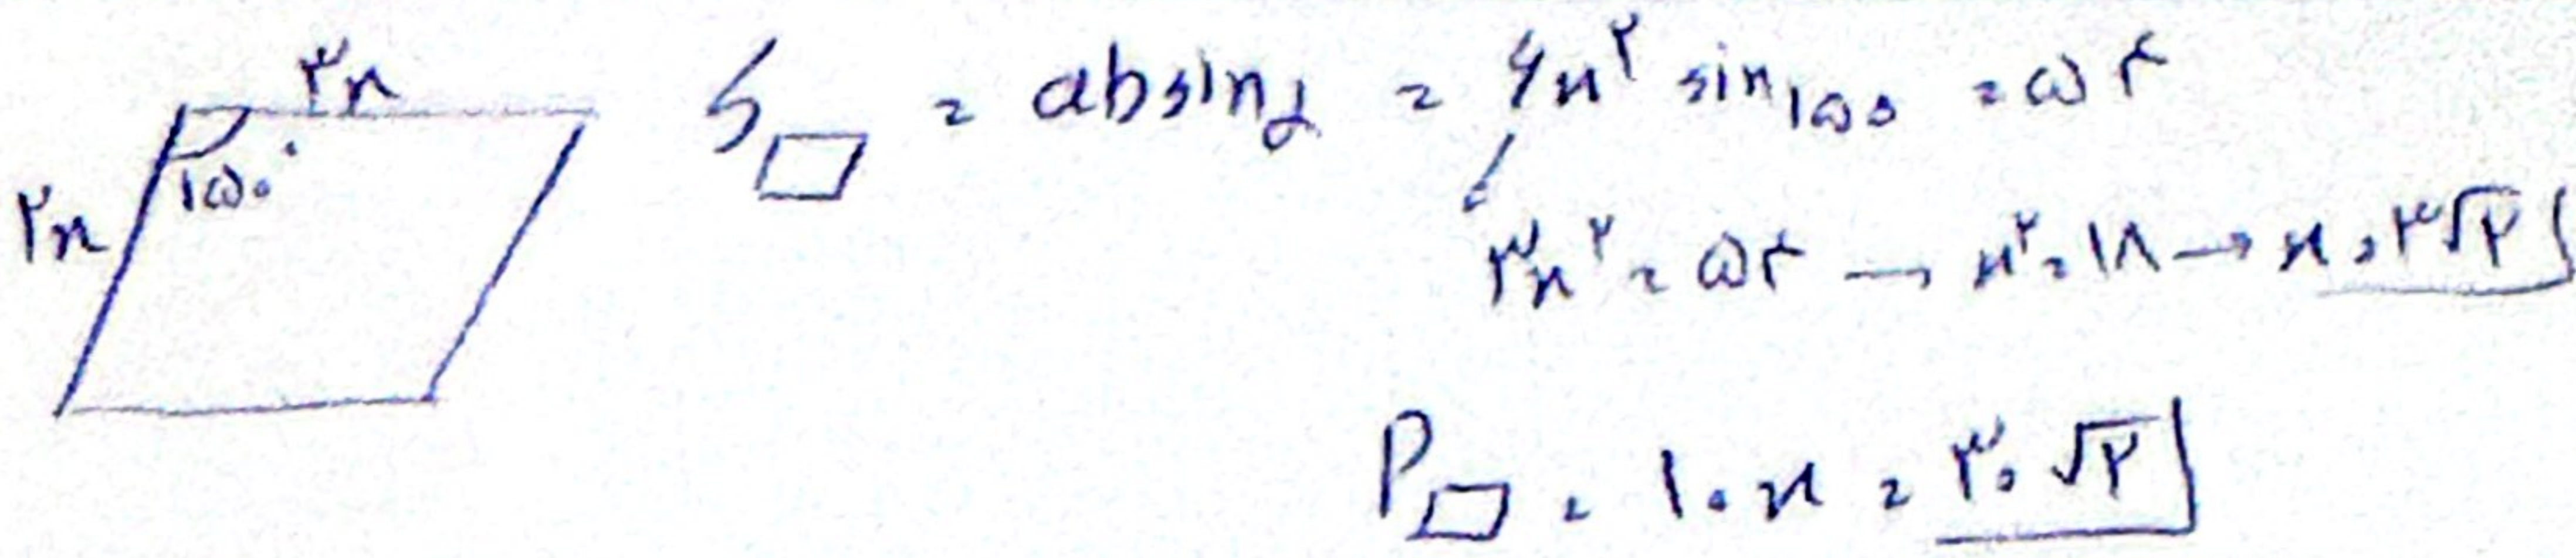 ۳x
۲x
۱۵۰°
S▱ = absinα = ۶x² sin۱۵۰ = ۵۴
۳x² = ۵۴ → x² = ۱۸ → x = ۳√۲
P▱ = ۱۰x = ۳۰√۲